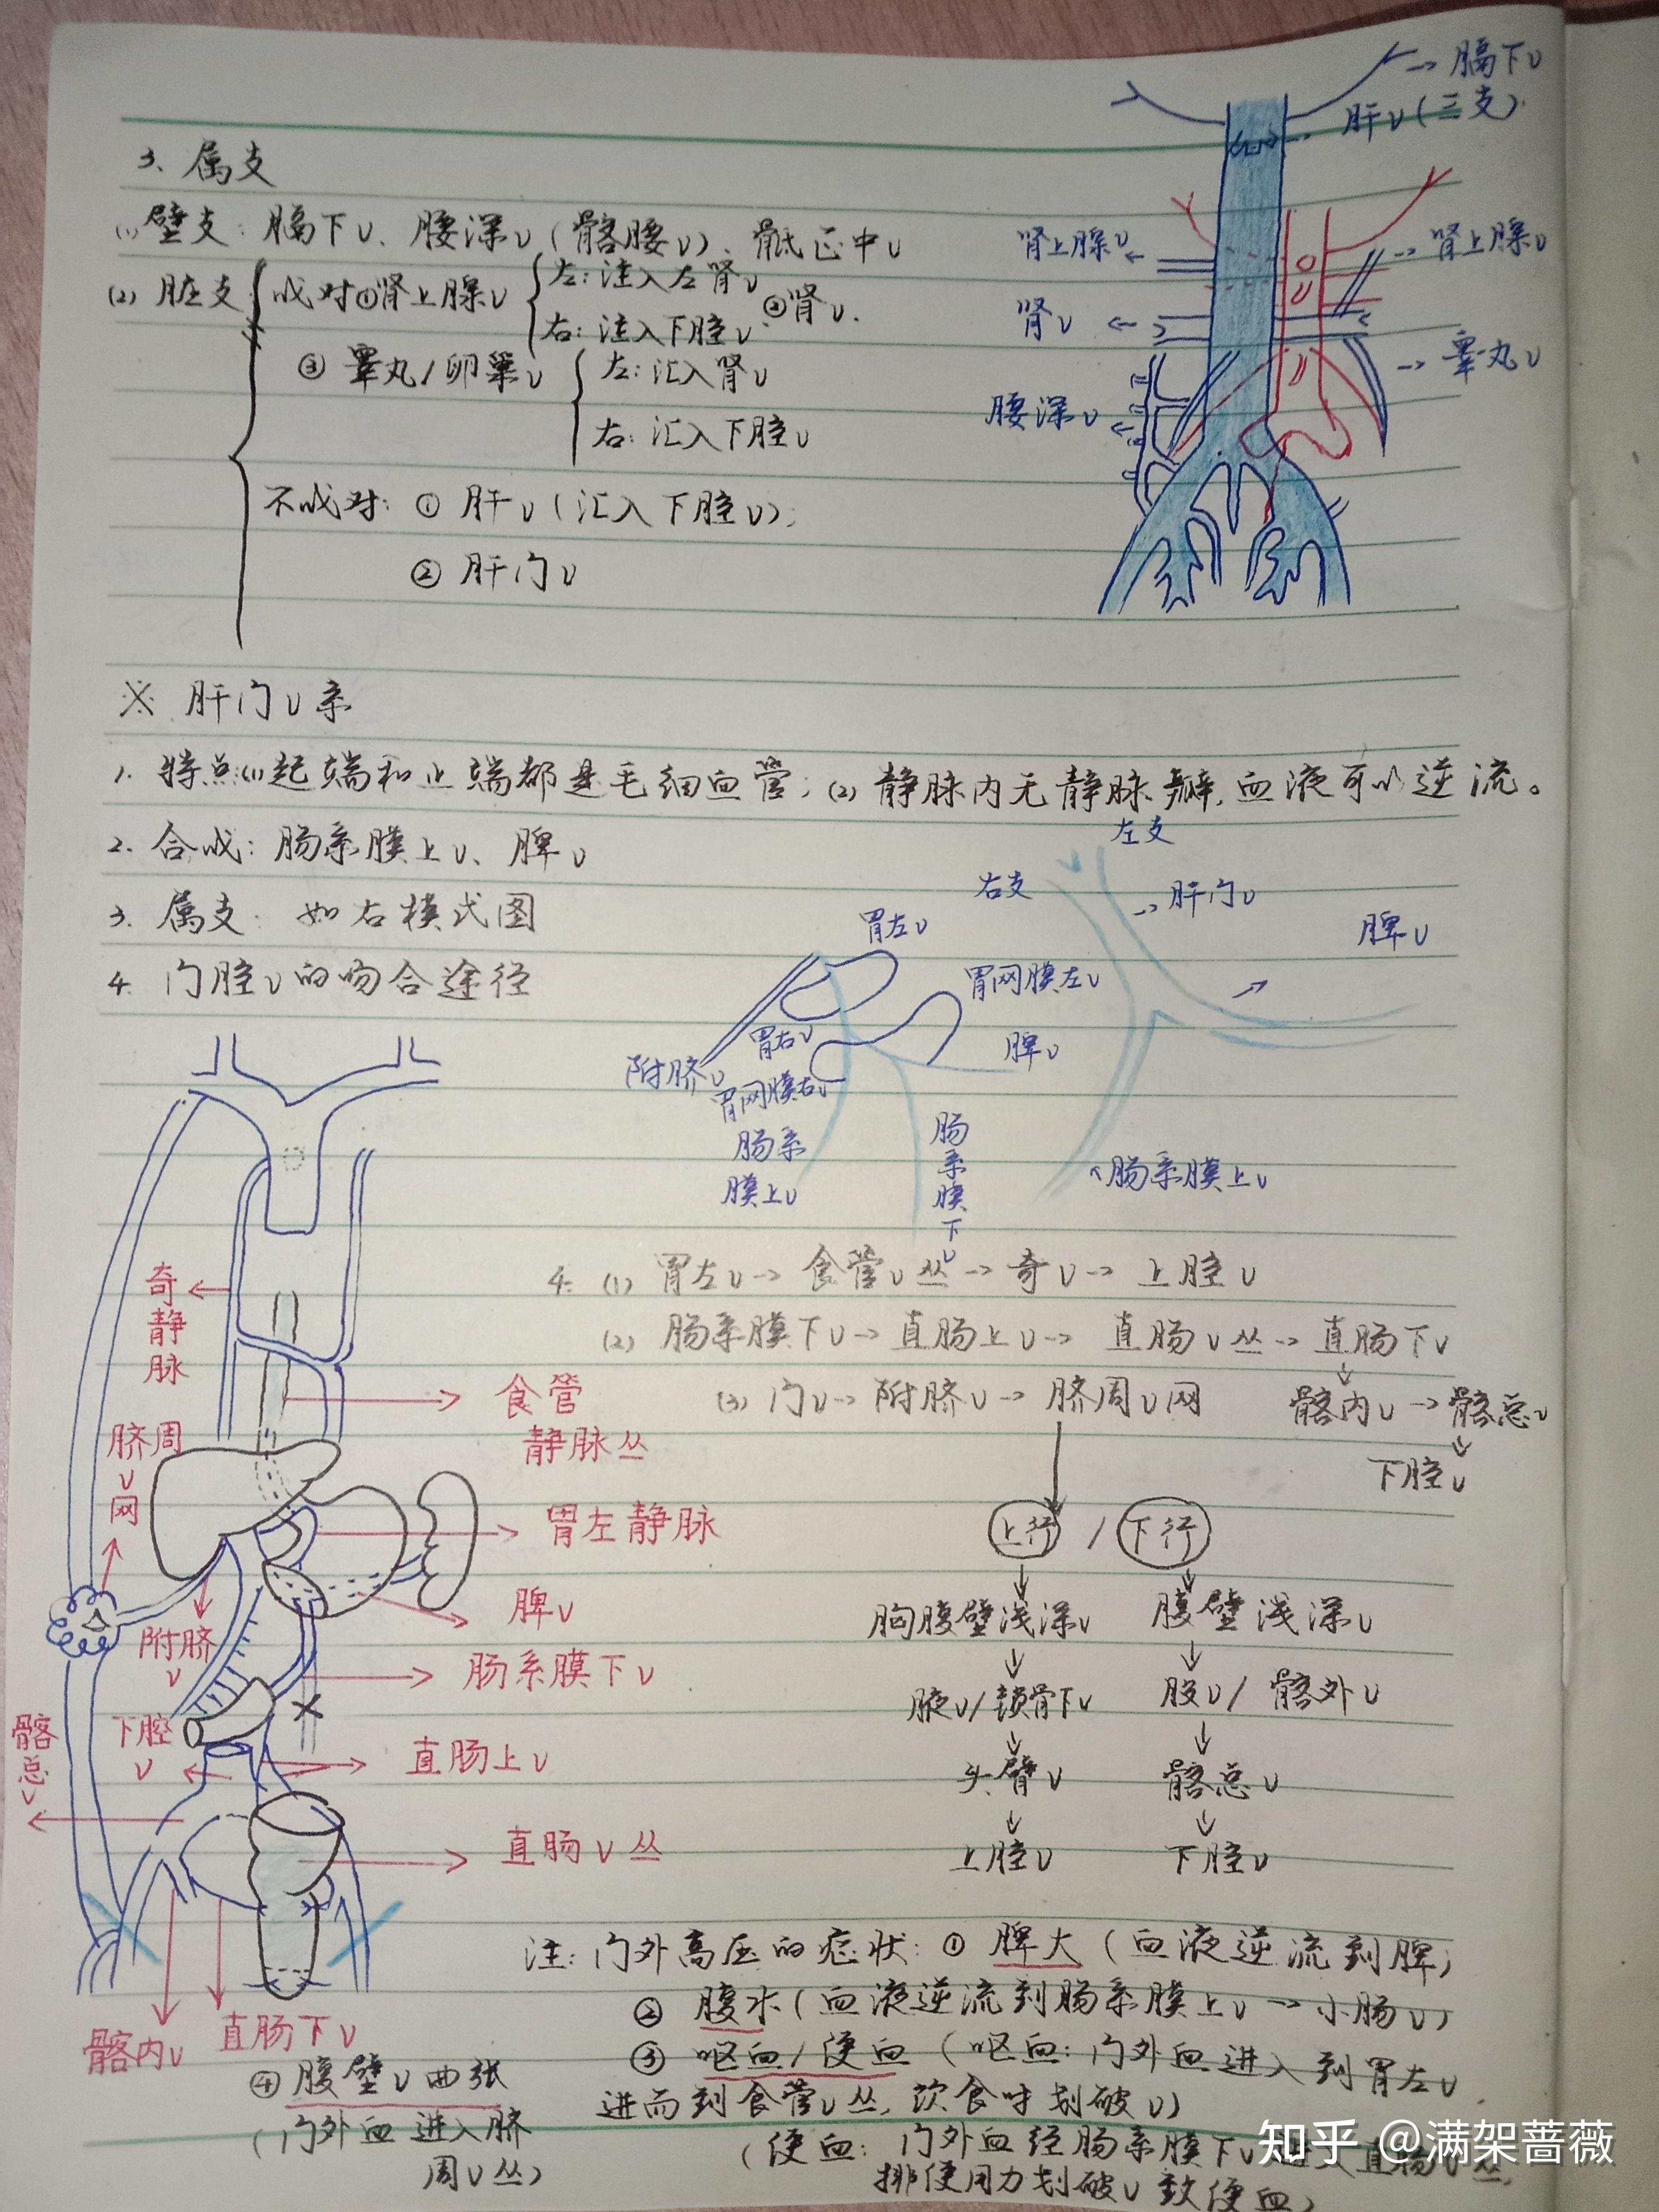 →膈下v
肝v(三支)
3. 属支
(1)壁支: 膈下v、腰深v(髂腰v)、骶正中v
(2)脏支 成对①肾上腺v 左: 注入左肾v ②肾v.
右: 注入下腔v.
③睾丸/卵巢v 左: 汇入肾v
右: 汇入下腔v
不成对: ①肝v(汇入下腔v);
②肝门v
肾上腺v←
→肾上腺v
肾v←
→睾丸v
腰深v←
※ 肝门v系
1. 特点:(1)起端和止端都是毛细血管; (2)静脉内无静脉瓣,血液可以逆流。
2. 合成: 肠系膜上v、脾v
3. 属支: 如右模式图
4. 门腔v的吻合途径
左支
右支
→肝门v
脾v
胃左v
胃网膜左v
胃右v
脾v
附脐v
胃网膜右v
肠系
膜上v
肠系膜下v
肠系膜上v
4. (1) 胃左v→食管v丛→奇v→上腔v
(2) 肠系膜下v→直肠上v→直肠v丛→直肠下v
↓
髂内v→髂总v
↓
下腔v
(3) 门v→附脐v→脐周v网
↓
上行 / 下行
↓ ↓
胸腹壁浅深v 腹壁浅深v
↓ ↓
腋v/锁骨下v 股v/髂外v
↓ ↓
头臂v 髂总v
↓ ↓
上腔v 下腔v
奇静脉
食管
静脉丛
脐周
v
网
胃左静脉
脾v
附脐
v
肠系膜下v
髂总v
下腔
v
直肠上v
直肠v丛
髂内v
直肠下v
注: 门外高压的症状: ①脾大(血液逆流到脾)
②腹水(血液逆流到肠系膜上v→小肠v)
③呕血/便血(呕血: 门外血进入到胃左v
进而到食管v丛, 饮食时划破v)
(便血: 门外血经肠系膜下v进入直肠v丛,
排便用力划破v致便血)
④腹壁v曲张
(门外血进入脐
周v丛)
知乎 @满架蔷薇